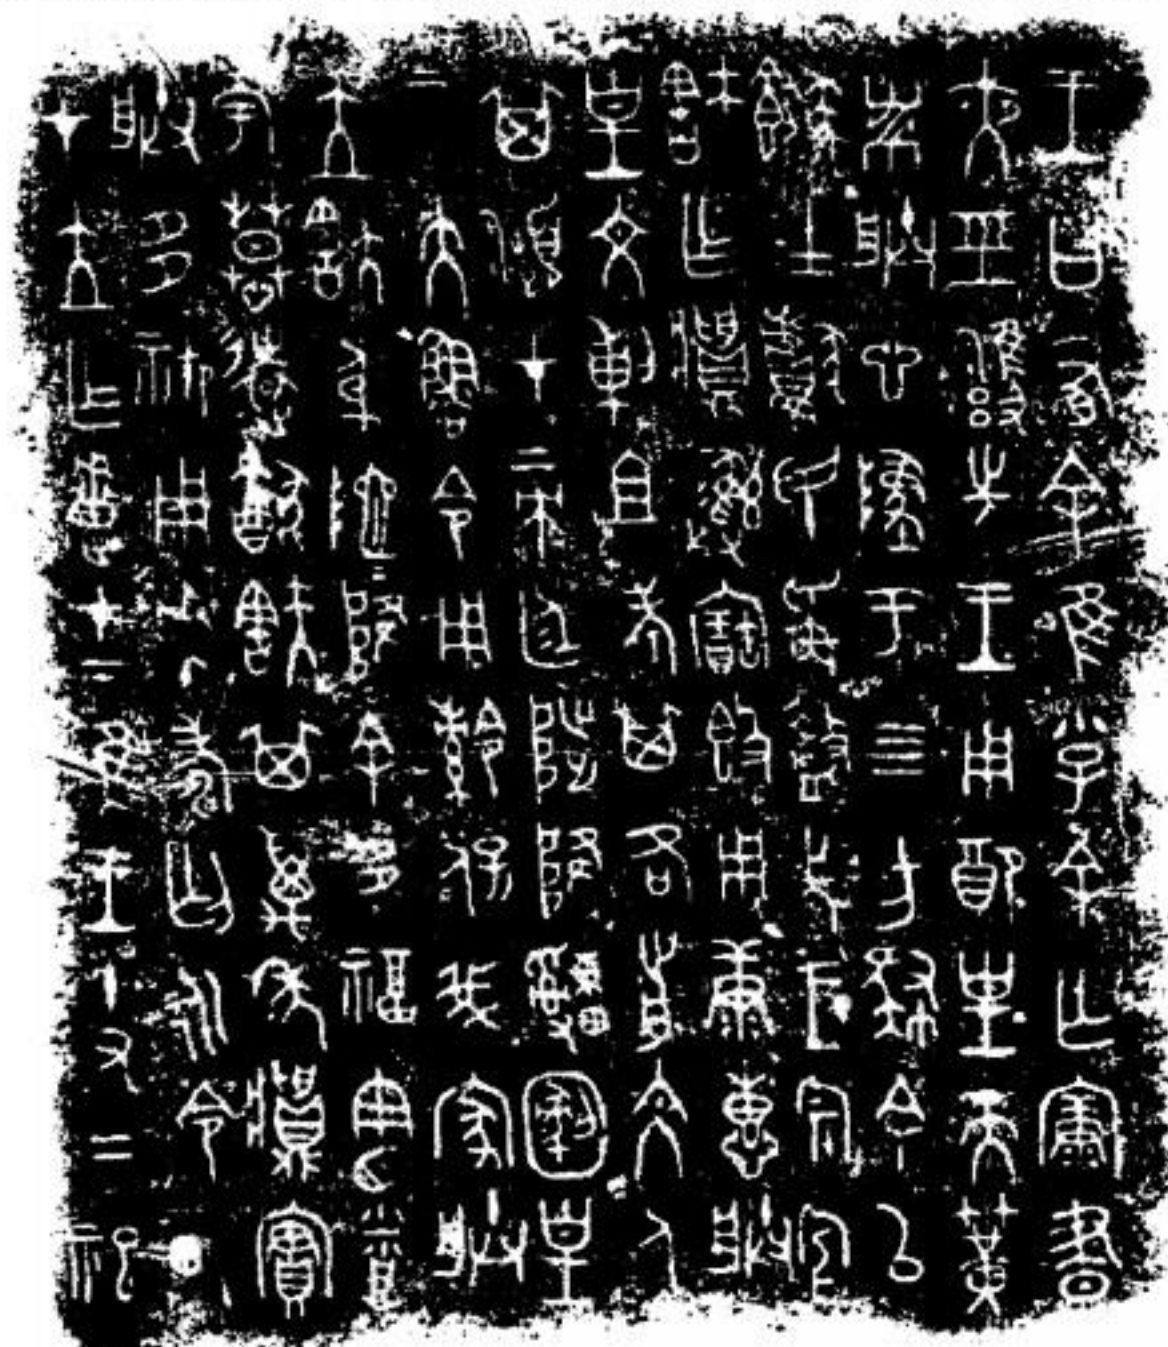 王曰有余隹小子余亡康晝
夜巠雝先王用配皇天簧
黹朕心墜于四方肆余以
𩫨士獻民爯盩先王宗室
㝬作𪔂彝寶簋用康惠朕
皇文剌祖考其各前文人
其瀕才帝廷陟降䌛圝皇
帝大魯令用令保我家朕
立㝬身阤阤降余多福憲烝
宇慕遠猷㝬其萬年𪔂實
朕多禦用𠦪壽匄永令畯
才立乍疐才下隹王十又二祀